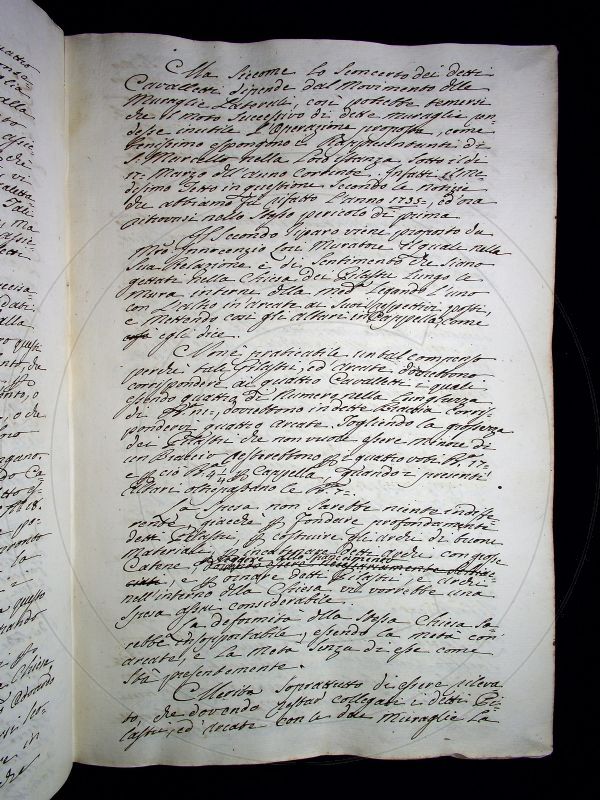 Ma siccome lo sconcerto dei detti
Cavalletti dipende dal Movimento delle
Muraglie Laterali, così potrebbe temersi
che il moto successivo di dette muraglie ren-
desse inutile l'Operazione proposta, come
benissimo espongono i Rappresentanti di
S. Marcello nella loro Istanza sotto il dì
Marzo dell'anno corrente. Infatti il me-
desimo Tetto in questione secondo le notizie
che abbiamo fu rifatto l'anno 1735, ed ora
ritrovasi nello stesso pericolo di prima
Il Secondo riparo viene proposto da
Mro Innocenzio Muratore il quale nella
Sua relazione è di sentimento che siano
gettati nella Chiesa dei Pilastri lungo le
Mura laterali della med. legando l'uno
con l'altro in arcate ai suoi rispettivi posti,
e Mettendo così gli altari in Cappella, come
egli dice.
Non è praticabile un tal compenso
perché tali Pilastri, ed arcate dovrebbero
corrispondere ai quattro Cavalletti i quali
essendo quattro di Numero, nella lunghezza
di dovrebbero in dette Braccia corris-
pondervi quattro arcate. Togliendo la grossezza
dei Pilastri che non vuole essere minore di
un Braccio resterebbero quattro voti
e per ciò per Cappella, quando i presenti
Altari occupano le
La Spesa non sarebbe niente indiffe-
rente, giacché per fondare profondamente
detti Pilastri, per costruire gli archi di buon
Materiale, detti archi con grosse
Catene
e per ornare detti Pilastri, e archi
nell'interno della Chiesa vi vorrebbe una
spesa assai considerabile.
La deformità della stessa Chiesa sa-
rebbe insopportabile, essendo la metà con
arcate, e la metà senza di esse come
sta presentemente.
Merita soprattutto di essere rileva-
to, che dovendo restar collegati i detti Pi-
lastri, ed arcate con le due Muraglie La